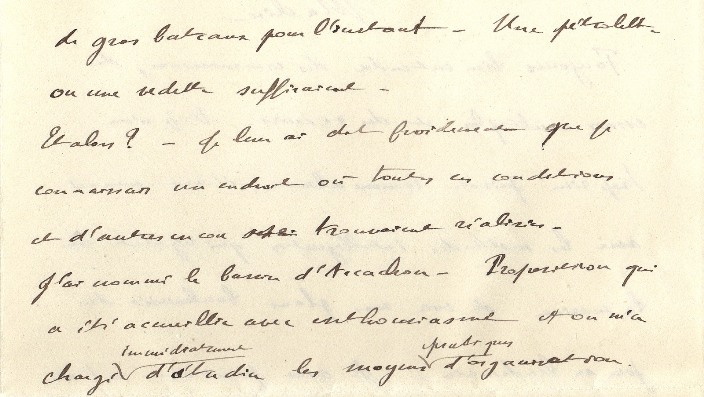 de gros bateaux pour l'instant – Une pétrolette
ou une vedette suffiraient –
Et alors ? – Je leur ai dit froidement que je
connaissais un endroit où toutes ces conditions
et d'autres encore se trouvaient réalisées –
J'ai nommé le bassin d'Arcachon – Proposition qui
a été accueillie avec enthousiasme et on m'a
immédiatement pratiques
chargé d'étudier les moyens d'organisation.